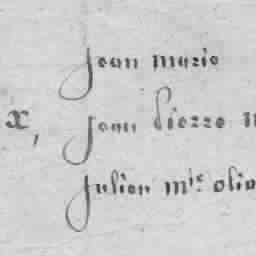 jean marie
x, jean pierre
julien m.ie